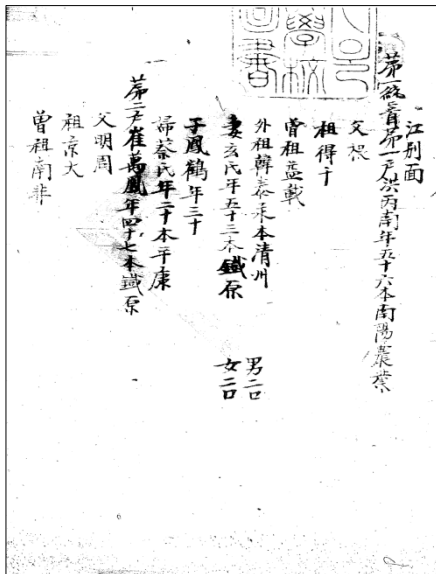 江別面
第一統首第一戶洪丙南年五十六本南陽農業
父
祖得千
曾祖益載
外祖韓泰本清州 男二口
妻玄氏年五十三本鐵原 女二口
子鳳鶴年三十
婦蔡氏年二十本平康
第二戶崔萬鳳年四十七本鐵原
父明周
祖京大
曾祖南非
學校
圖書